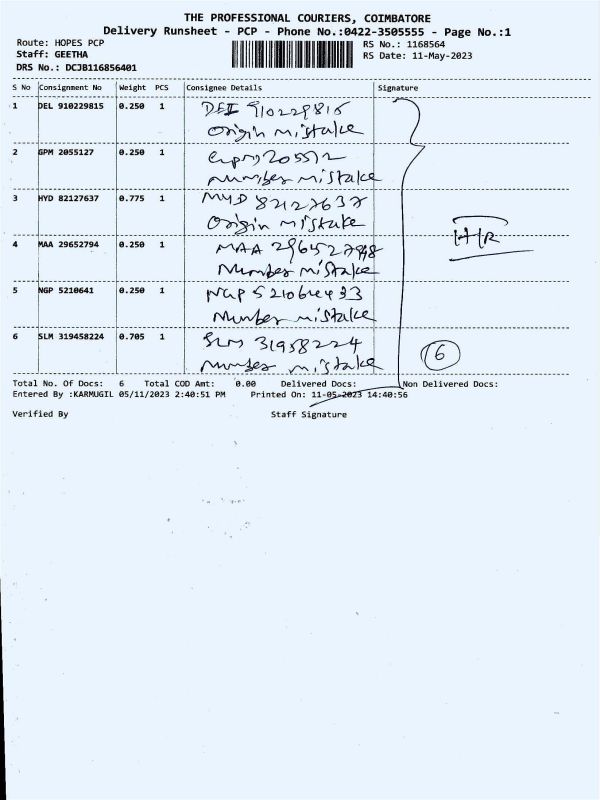 THE PROFESSIONAL COURIERS, COIMBATORE
Delivery Runsheet - PCP - Phone No.:0422-3505555 - Page No.:1
Route: HOPES PCP
RS No.: 1168564
Staff: GEETHA
RS Date: 11-May-2023
DRS No.: DCJB116856401
S No Consignment No Weight PCS Consignee Details Signature
1 DEL 910229815 0.250 1
origin mistake
2 GPM 2055127 0.250 1
number mistake
3 HYD 82127637 0.775 1 MYD 82127637
Origin mistake
4 MAA 29652794 0.250 1 MAA
Number mistake
5 NGP 5210641 0.250 1
Number mistake
6 SLM 319458224 0.705 1 SLM 31958224
number mistake
H/R
6
Total No. Of Docs: 6 Total COD Amt: 0.00 Delivered Docs: Non Delivered Docs:
Entered By :KARMUGIL 05/11/2023 2:40:51 PM Printed On: 11-05-2023 14:40:56
Verified By Staff Signature